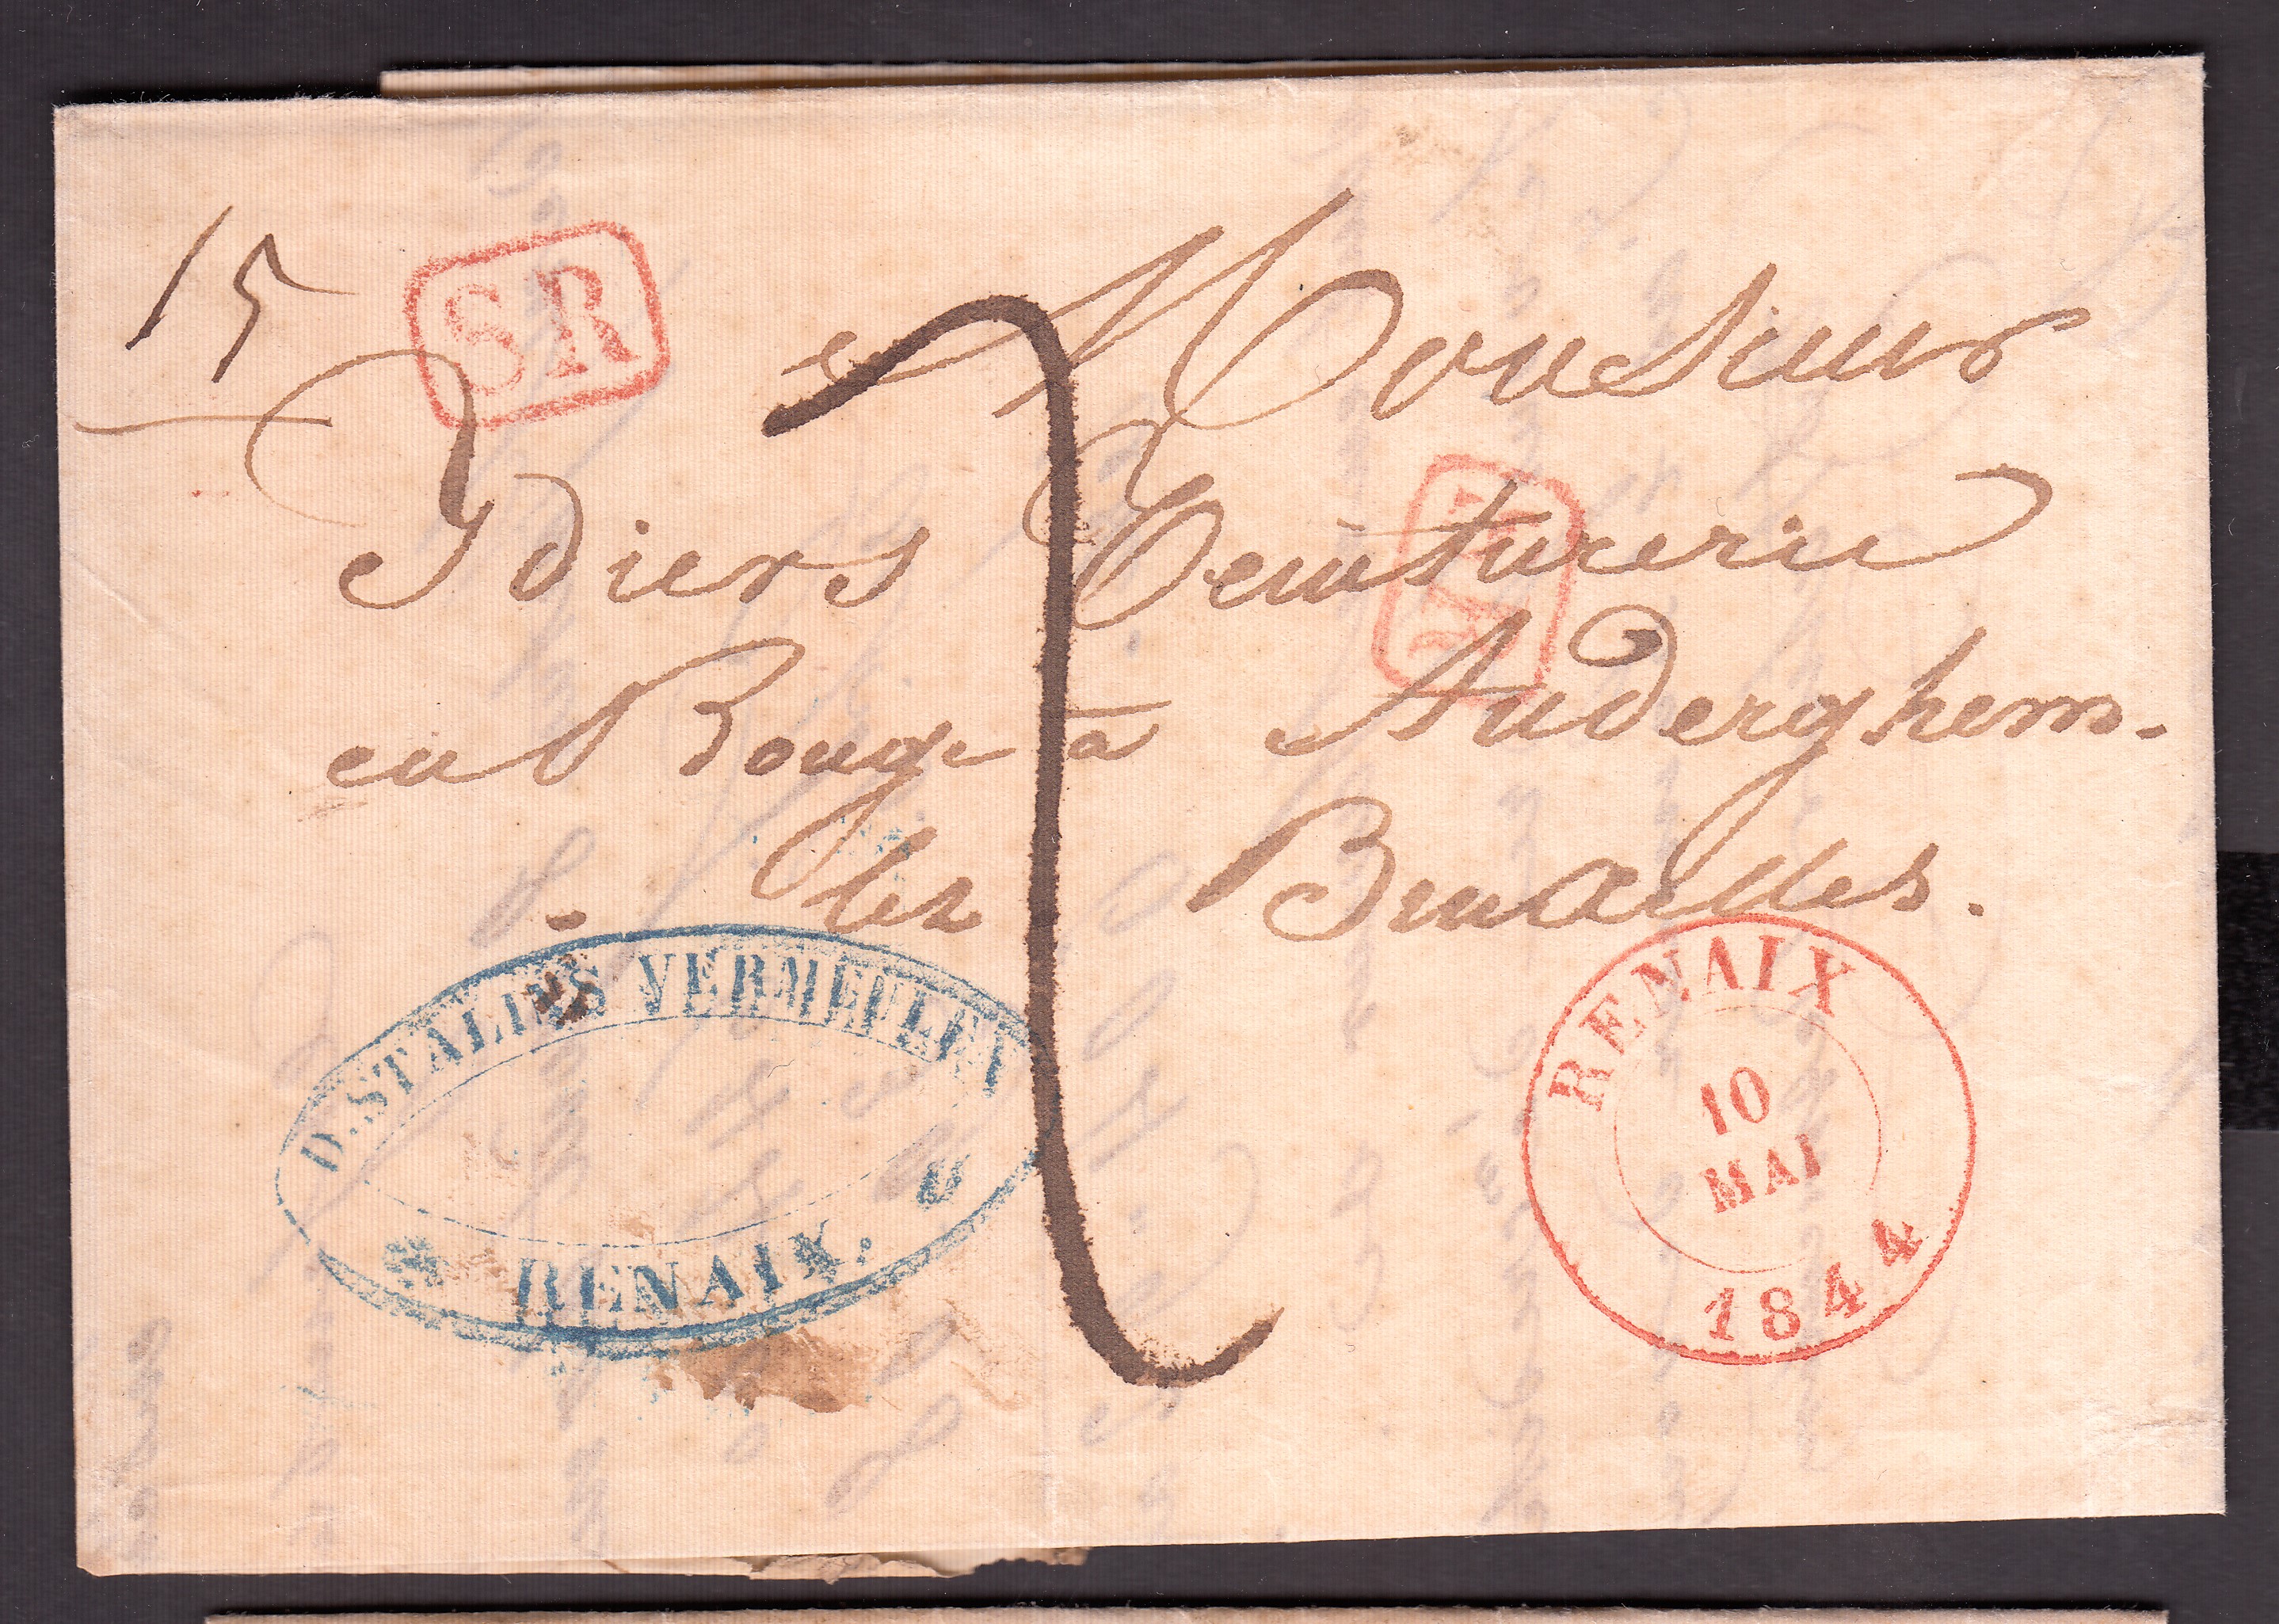 15
SR
Monsieur
Idiers Teinturerie
en Rouge à Auderghem-
lez Bruxelles.
D. STALINS VERMEULEN
RENAIX.
RENAIX
10
MAI
1844